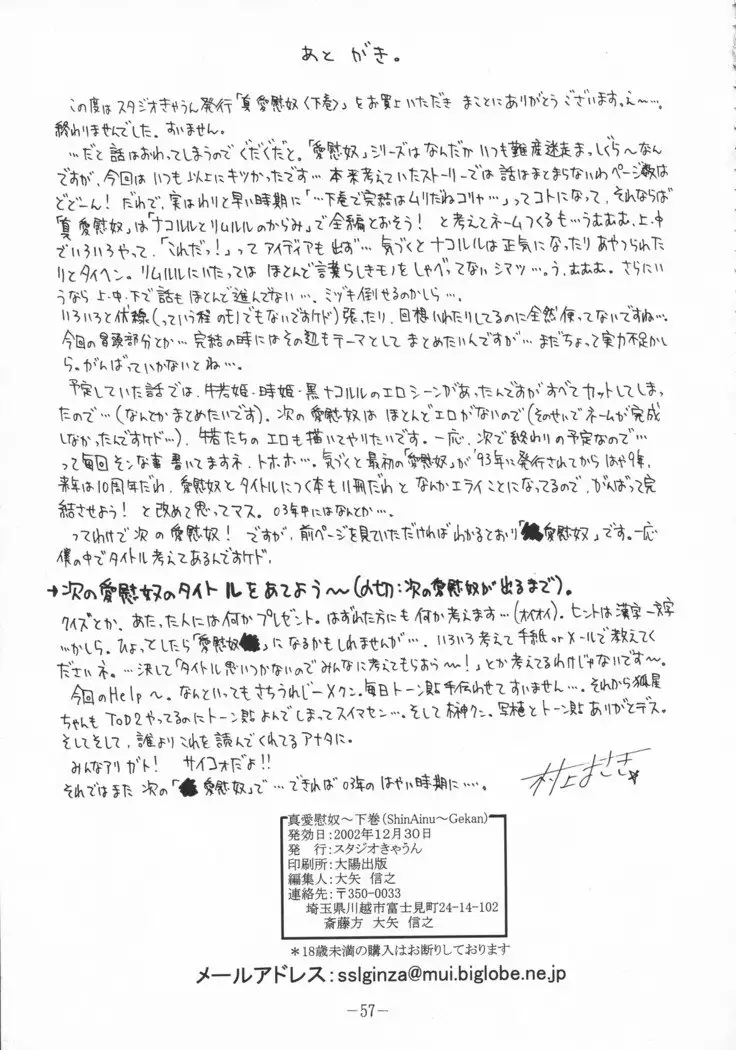 あと がき。
この度はスタジオきゃうん発行「真愛慰奴〈下巻〉」をお買上いただき まことにありがとうございます。え〜…。
終わりませんでした。すいません。
…だと話はおわってしまうのでぐだぐだと。「愛慰奴」シリーズはなんだかいつも難産迷走まっしぐら〜なん
ですが、今回はいつも以上にキツかったです… 本来考えていたストーリーでは話はまとまらないわページ数は
どどーん！だわで、実はわりと早い時期に「…下巻で完結はムリだねコリャ…」ってコトになって、それならば
「真愛慰奴」は「ナコルルとリムルルのからみ」で全編とおそう！と考えてネームつくるも…うむむむ、上・中
でいろいろやって、「これだっ！」ってアイディアも出ず… 気づくとナコルルは正気になったりあやつられた
りとタイヘン。リムルルにいたっては ほとんど言葉らしきモノをしゃべってないシマツ…。う、むむむ。さらにい
うなら上・中・下で話もほとんど進んでない…。ミヅキ倒せるのかしら…。
いろいろと伏線（っていう程のモノでもないですケド）張ったり、回想いれたりしてるのに全然使ってないですね…。
今回の冒頭部分とか… 完結の時にはその辺もテーマとしてまとめたいんですが… まだちょって実力不足かし
ら。がんばっていかないとね…。
予定していた話では、牛若姫・時姫・黒ナコルルのエロシーンがあったんですがすべてカットしてしまっ
たので…（なんとかまとめたいです）。次の愛慰奴はほとんどエロがないので（そのせいでネームが完成
しなかったんですケド…）、牛若たちのエロも描いてやりたいです。一応、次で終わりの予定なので…
って毎回そんな事書いてますネ、トホホ…。気づくと最初の「愛慰奴」が'93年に発行されてからはや9年、
来年は10周年だわ、愛慰奴とタイトルにつく本も11冊だわとなんかエライことになってるので、がんばって完
結させよう！と改めて思ってマス。03年中にはなんとか…。
ってわけで次の愛慰奴！ですが、前ページを見ていただければわかるとおり「愛慰奴」です。一応
僕の中でタイトル考えてあるんですケド、
→次の愛慰奴のタイトルをあてよう〜（〆切：次の愛慰奴が出るまで）。
クイズとか、あたった人には何かプレゼント。はずれた方にも何か考えます…（オイオイ）。ヒントは漢字一文字
かしら。ひょっとしたら「愛慰奴」になるかもしれませんが…、いろいろ考えて手紙orメールで教えてく
ださいネ。…決して「タイトル思いつかないのでみんなに考えてもらおう〜！」とか考えてるわけじゃないです〜。
今回のHelp〜。なんといってもさちうれじーXクン。毎日トーン貼手伝わせてすいません…。それから狐星
ちゃんもToD2やってるのにトーン貼よんでしまってスイマセン…。そして神クン。写植とトーン貼ありがとデス。
そしてそして、誰よりこれを読んでくれてるアナタに。
みんなアリガト！ サイコォだよ!!
それではまた 次の「愛慰奴」で…できれば03年のはやい時期に…。
村上まさき
真愛慰奴〜下巻(ShinAinu〜Gekan)
発効日：2002年12月30日
発 行：スタジオきゃうん
印刷所：大陽出版
編集人：大矢 信之
連絡先：〒350-0033
埼玉県川越市富士見町24-14-102
斎藤方 大矢 信之
＊18歳未満の購入はお断りしております
メールアドレス：sslginza@mui.biglobe.ne.jp
－57－